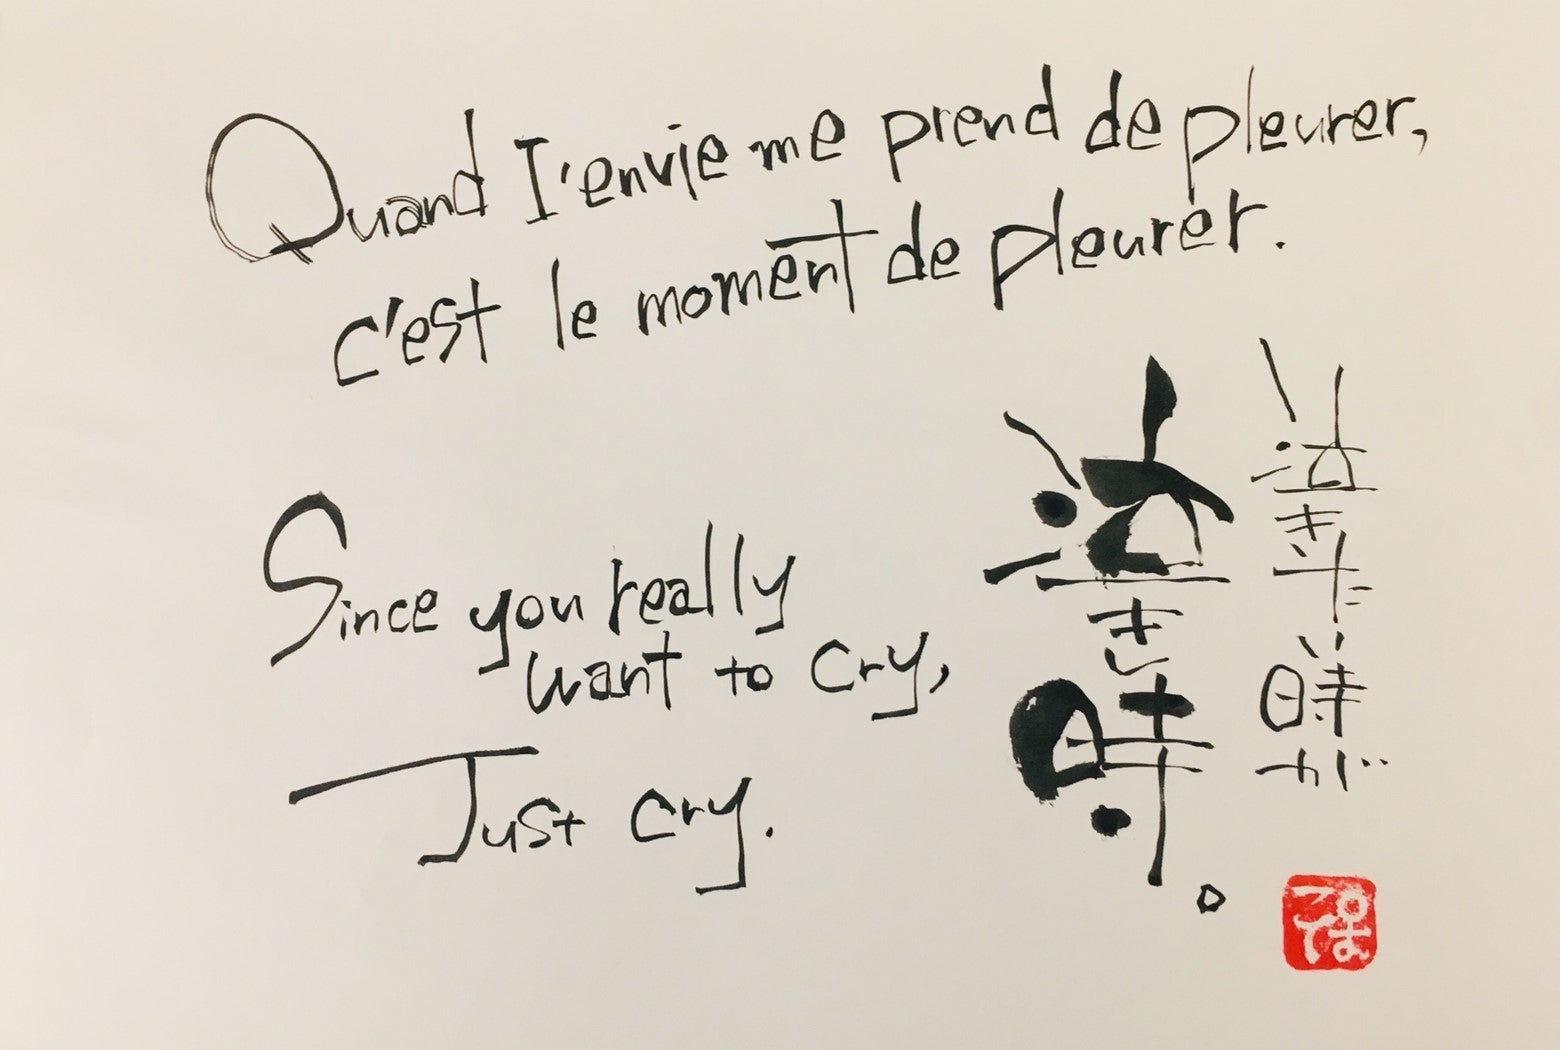 Quand I'envie me prend de pleurer,
c'est le moment de pleurer.
Since you really
want to cry,
Just cry.
泣きたい時が
泣き時。